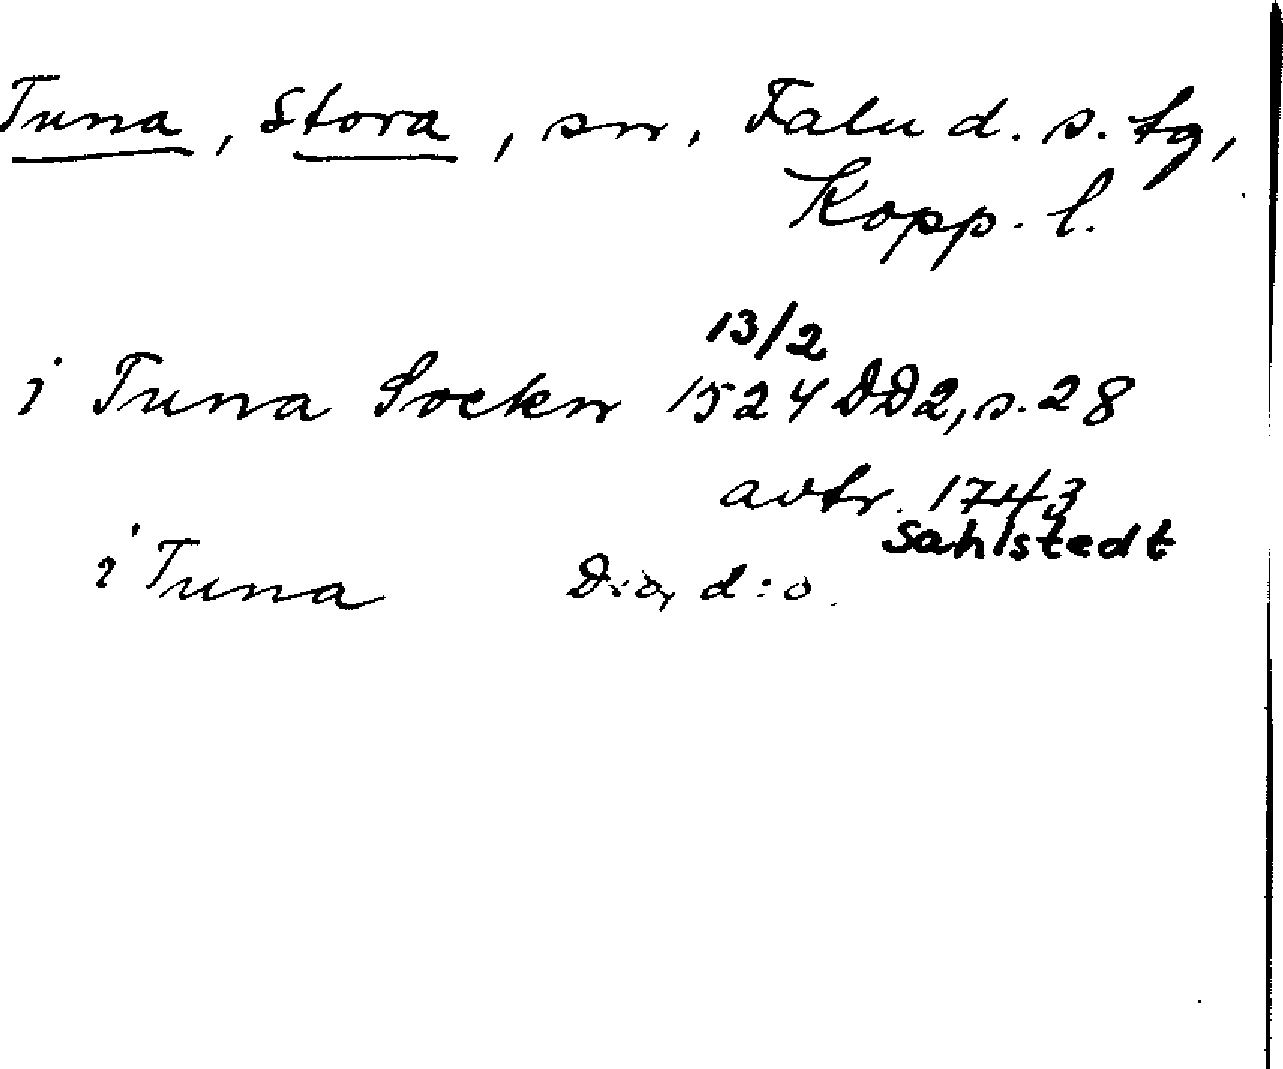 Tuna, Stora, sn, Falu d. s. tg,
Kopp. l.
13/2
i Tuna Sockn 1524 DD2, s. 28
avtr. 1743
Sahlstedt
i Tuna d:o